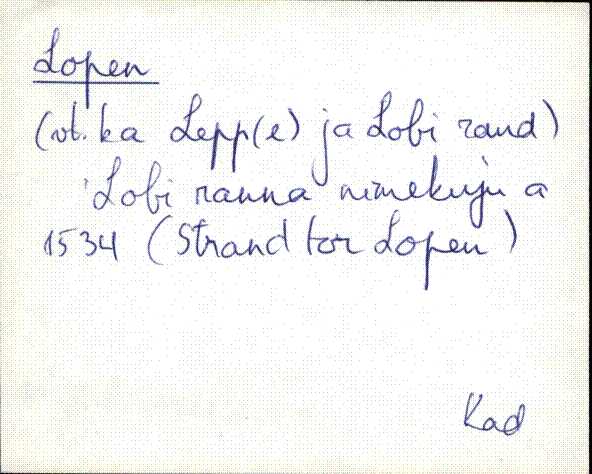 Lopen
(vt. ka Lepp(e) ja Lobi rand)
'Lobi ranna nimekuju a
1534 (Strand tor Lopen)
Kad